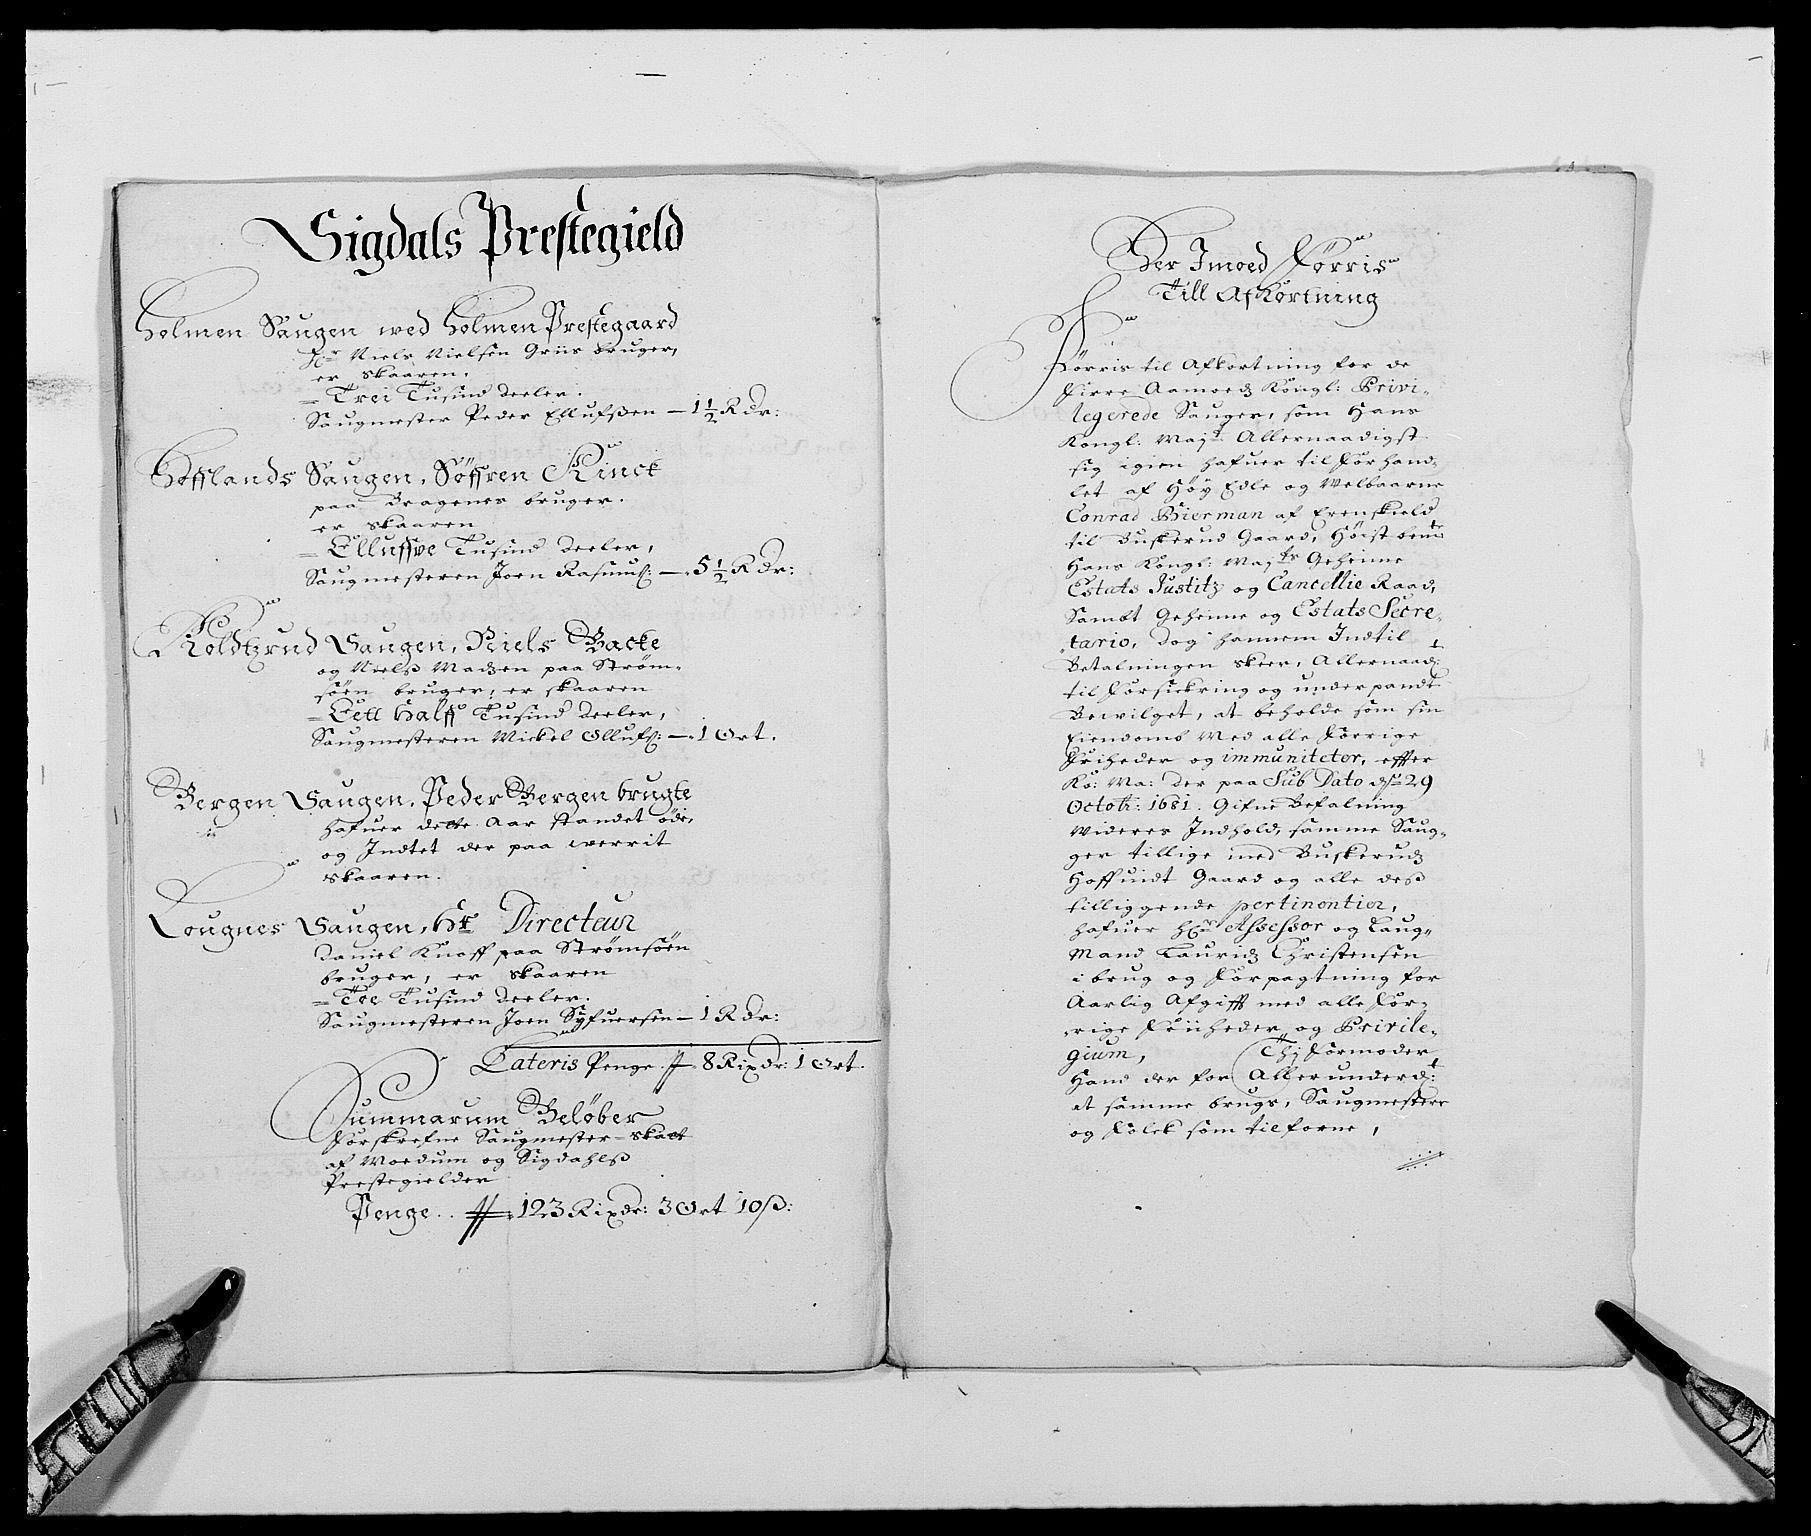 Sigdals Prestegield
Holmen Saugen wed Holmen Prestegaard
Hr Niels Nielsen Griis bruger,
er skaaren,
= Trei Tusind Deeler.
Saugmester Peder Ellufsen — 1½ Rdr:
Hofflands Saugen, Söffren Kinck
paa Bragenes bruger.
er skaaren
= Elluffve Tusind Deeler,
Saugmesteren Joen Rasmuß: — 5½ Rdr:
Koldtzrud Saugen, Niels Backe
og Nielß Madzen paa Ström-
söen bruger, er skaaren
= Eett halff Tusind Deeler,
Saugmesteren Mickel Ollufß: — 1 Ort.
Bergen Saugen, Peder Bergen brugte
hafuer dette Aar standet öde,
og Indtet der paa werrit
skaaren.
Lougnes Saugen, Hr Directeur
Daniel Knoff paa Strømsöen
bruger, er skaaren
= Toe Tusind Deeler.
Saugmesteren Joen Syfuersen — 1 Rdr:
Lateris Penge 8 Rixdr: 1 Ort.
Summarum Beløber
Forskrefne Saugmester-skatt
af Moedum og Sigdahlß
Prestegielder
Penge .. 123 Rixdr: 3 Ort 10 ß:
Der Imoed Förris
Till Afkortning
Förris til Afkortning for de
Fiire Aamoedz Kongl: Privi-
legerede Sauger, som Hans
Kongl: Mayt Allernaadigst
sig igien hafuer til Forhand-
let af Høy Edle og Welbaarne
Conrad Bierman af Erenskield
til Buskerud Gaard, Høist bemte
Hans Kongl: Mayts Geheime
Estats Justitz og Cancellie Raad,
Sambt Geheime og Estats Secre-
tario, dog hannem Indtil
Betalningen skeer, Allernaadt:
til Forsickring og underpandt
Bewilget, at beholde som sin
Eiendomb med alle Forrige
Friheder og immuniteter, effter
Ko: Ma: der paa Sub Dato dend 29
Octob: 1681. Gifne Befalning
Wideres Indhold, samme Saug-
ger tillige med Buskerudz
Hoffuidt Gaard og alle deß
tilliggende pertinentier,
hafuer Hr Assessor og Laug-
mand Lauridz Christensen
i brug og Forpagtning for
Aarlig Afgifft med alle For-
rige Friiheder og Privile-
gium, Thj formoder
Hand der for Allerunderdt:
at samme brugs, Saugmestere
og Folck som tilforne,